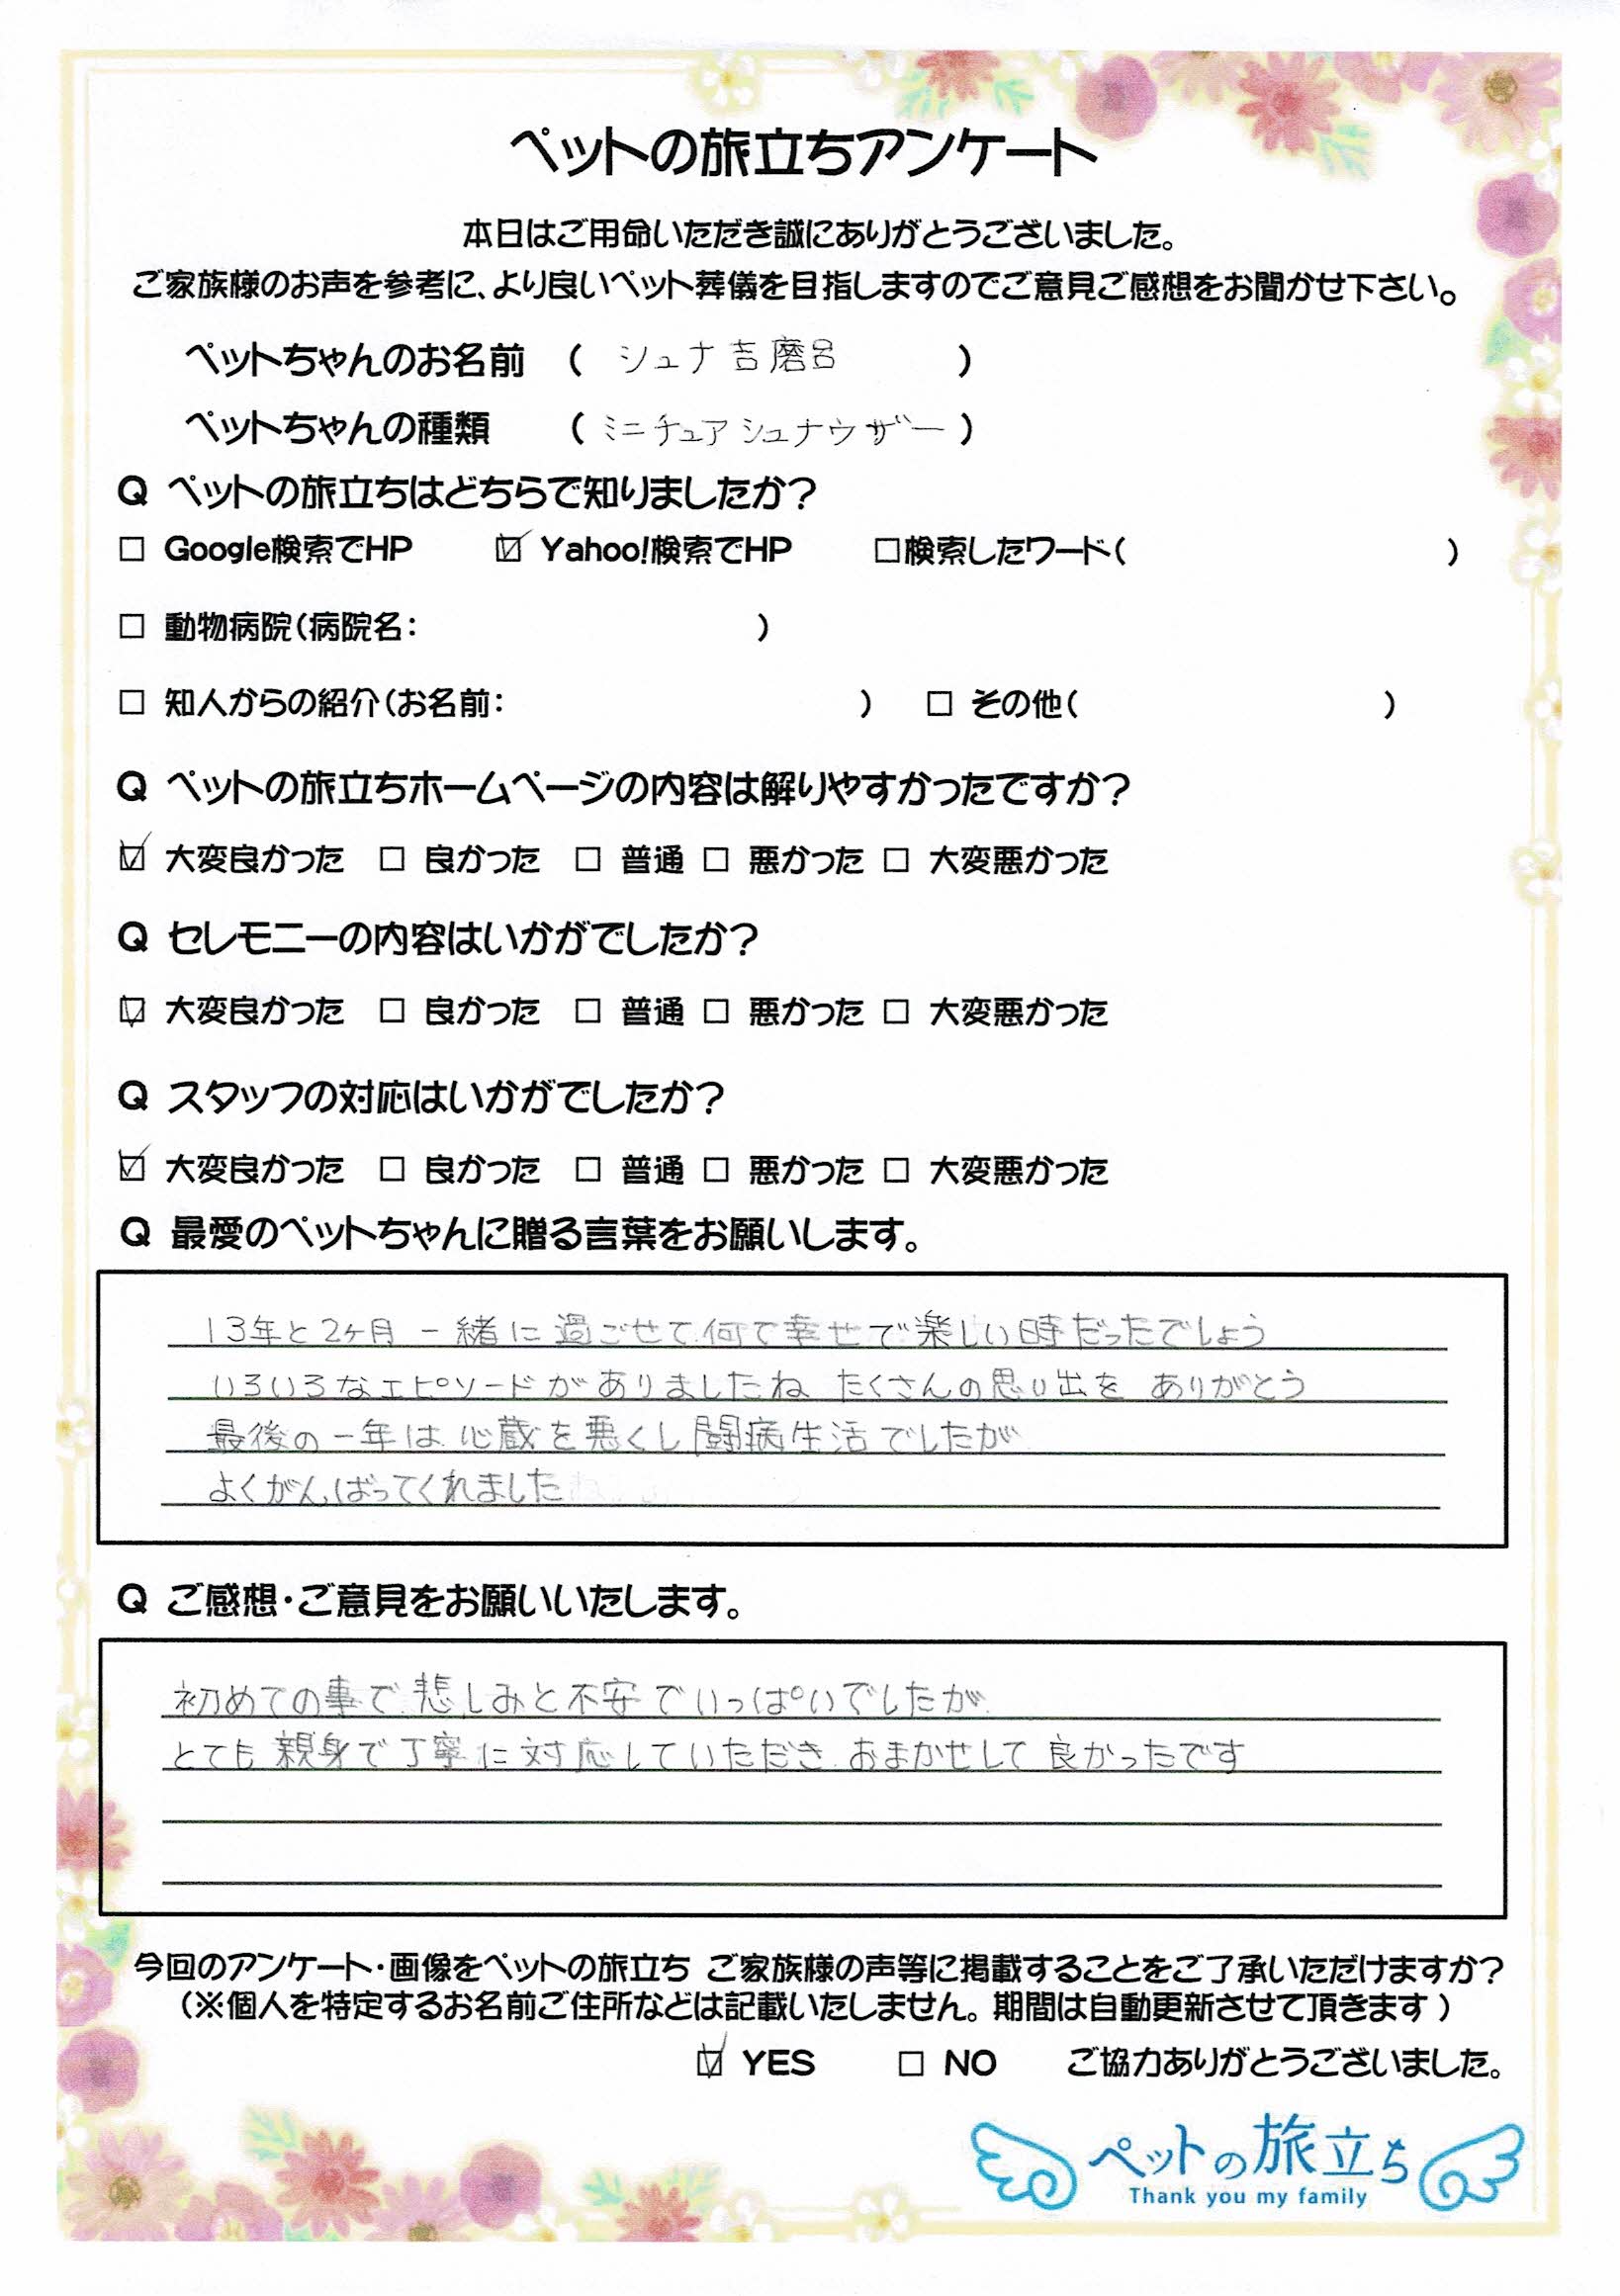 ペットの旅立ちアンケート
本日はご用命いただき誠にありがとうございました。
ご家族様のお声を参考に、より良いペット葬儀を目指しますのでご意見ご感想をお聞かせ下さい。
ペットちゃんのお名前 ( シュナ吉磨呂 )
ペットちゃんの種類 ( ミニチュアシュナウザー )
Q ペットの旅立ちはどちらで知りましたか?
□ Google検索でHP ☑ Yahoo!検索でHP □検索したワード( )
□ 動物病院(病院名: )
□ 知人からの紹介(お名前: ) □ その他( )
Q ペットの旅立ちホームページの内容は解りやすかったですか?
☑ 大変良かった □ 良かった □ 普通 □ 悪かった □ 大変悪かった
Q セレモニーの内容はいかがでしたか?
☑ 大変良かった □ 良かった □ 普通 □ 悪かった □ 大変悪かった
Q スタッフの対応はいかがでしたか?
☑ 大変良かった □ 良かった □ 普通 □ 悪かった □ 大変悪かった
Q 最愛のペットちゃんに贈る言葉をお願いします。
13年と2ヶ月 一緒に過ごせて何て幸せで楽しい時だったでしょう
いろいろなエピソードがありましたね たくさんの思い出を ありがとう
最後の一年は 心蔵を悪くし闘病生活でしたが
よくがんばってくれました
Q ご感想・ご意見をお願いいたします。
初めての事で 悲しみと不安でいっぱいでしたが
とても 親身で丁寧に対応していただき おまかせして良かったです
今回のアンケート・画像をペットの旅立ち ご家族様の声等に掲載することをご了承いただけますか?
(※個人を特定するお名前ご住所などは記載いたしません。期間は自動更新させて頂きます)
☑ YES □ NO ご協力ありがとうございました。
ペットの旅立ち
Thank you my family